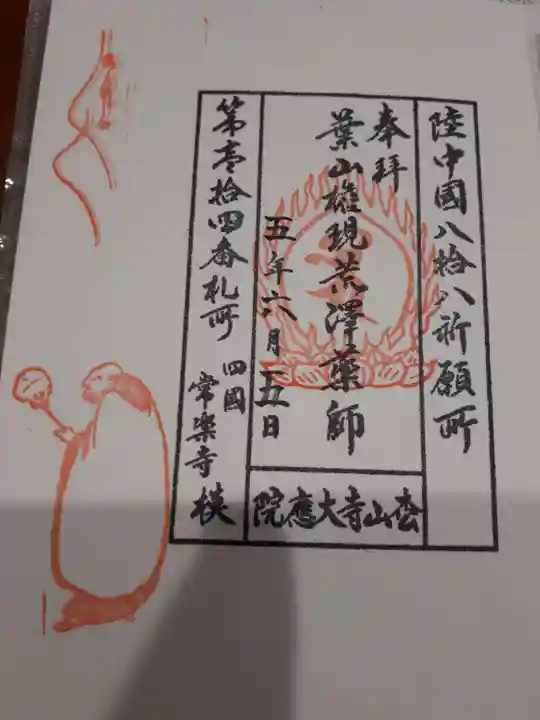 陸中國八拾八祈願所
奉拝
葉山権現荒澤薬師
五年六月五日
第壱拾四番札所 四國
常楽寺模
峯山寺大應院